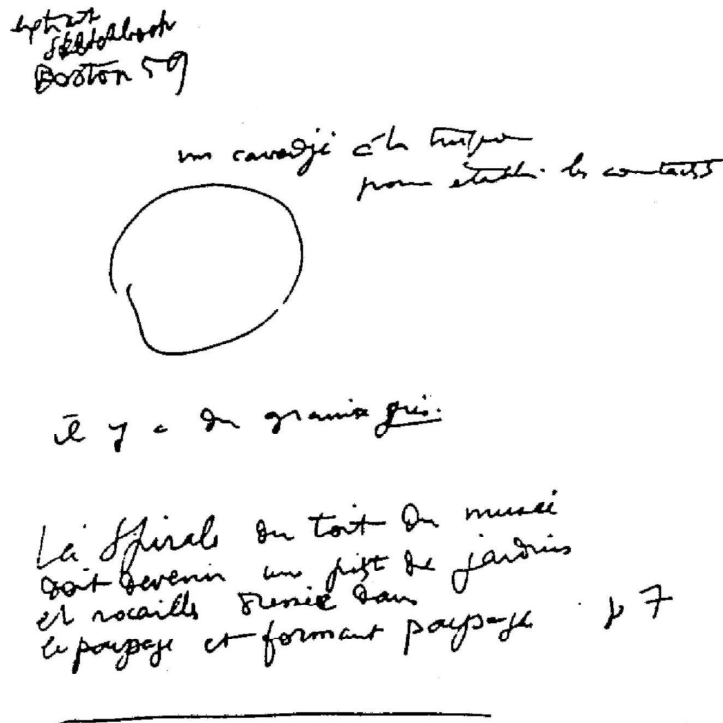 Sketchbook
Boston 59
un
pour établir les contacts
il y a du granix gris.
La Spirale du toit du musée
doit devenir une piste de jardins
et rocailles dans
le paysage et formant paysage p 7